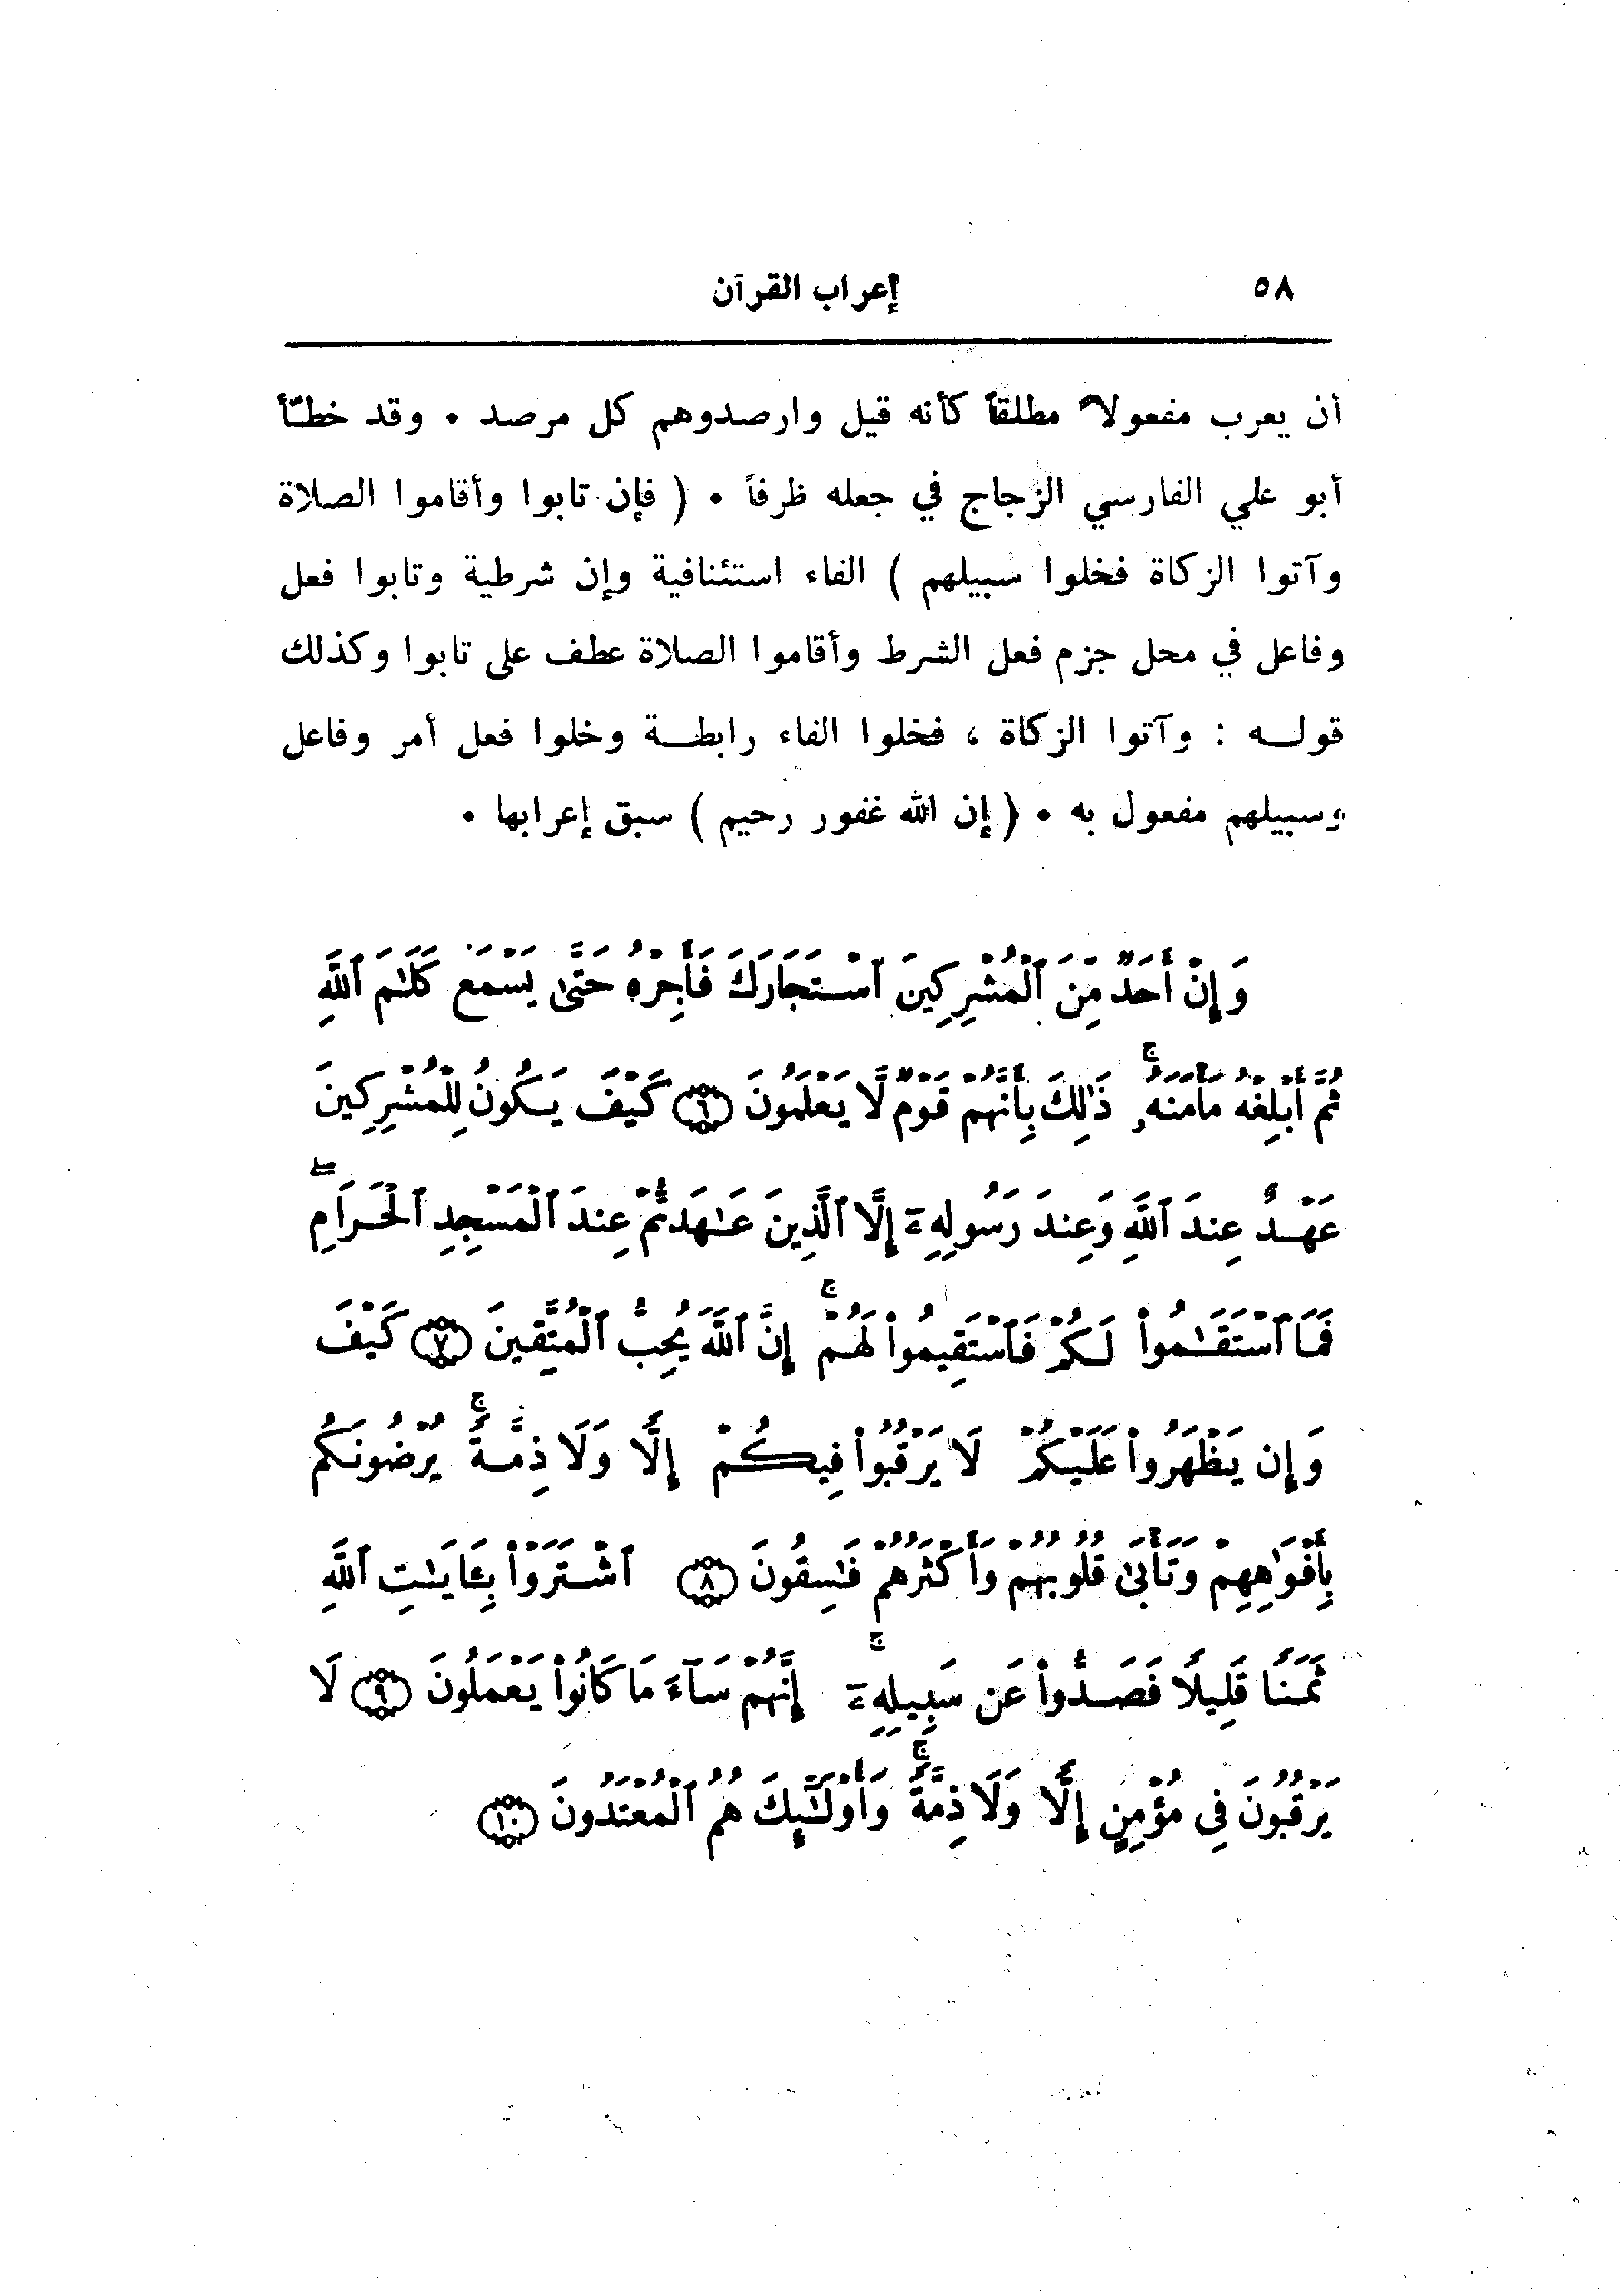 ٥٨ إعراب القرآن
أن يعرب مفعولاً مطلقاً كأنه قيل وارصدوهم كل مرصد ٠ وقد خطّأ
أبو علي الفارسي الزجاج في جعله ظرفاً ٠ ( فإن تابوا وأقاموا الصلاة
وآتوا الزكاة فخلوا سبيلهم ) الفاء استئنافية وإن شرطية وتابوا فعل
وفاعل في محل جزم فعل الشرط وأقاموا الصلاة عطف على تابوا وكذلك
قولـه : وآتوا الزكاة ، فخلوا الفاء رابطـة وخلوا فعل أمر وفاعل
وسبيلهم مفعول به ٠ ( إن الله غفور رحيم ) سبق إعرابها ٠
وَإِنْ أَحَدٌ مِّنَ ٱلْمُشْرِكِينَ ٱسْتَجَارَكَ فَأَجِرْهُ حَتَّىٰ يَسْمَعَ كَلَٰمَ ٱللَّهِ
ثُمَّ أَبْلِغْهُ مَأْمَنَهُۥ ۚ ذَٰلِكَ بِأَنَّهُمْ قَوْمٌ لَّا يَعْلَمُونَ ٦ كَيْفَ يَكُونُ لِلْمُشْرِكِينَ
عَهْدٌ عِندَ ٱللَّهِ وَعِندَ رَسُولِهِۦٓ إِلَّا ٱلَّذِينَ عَٰهَدتُّمْ عِندَ ٱلْمَسْجِدِ ٱلْحَرَامِ ۖ
فَمَا ٱسْتَقَٰمُوا۟ لَكُمْ فَٱسْتَقِيمُوا۟ لَهُمْ ۚ إِنَّ ٱللَّهَ يُحِبُّ ٱلْمُتَّقِينَ ٧ كَيْفَ
وَإِن يَظْهَرُوا۟ عَلَيْكُمْ لَا يَرْقُبُوا۟ فِيكُمْ إِلًّا وَلَا ذِمَّةً ۚ يُرْضُونَكُم
بِأَفْوَٰهِهِمْ وَتَأْبَىٰ قُلُوبُهُمْ وَأَكْثَرُهُمْ فَٰسِقُونَ ٨ ٱشْتَرَوْا۟ بِـَٔايَٰتِ ٱللَّهِ
ثَمَنًا قَلِيلًا فَصَدُّوا۟ عَن سَبِيلِهِۦٓ ۚ إِنَّهُمْ سَآءَ مَا كَانُوا۟ يَعْمَلُونَ ٩ لَا
يَرْقُبُونَ فِى مُؤْمِنٍ إِلًّا وَلَا ذِمَّةً ۚ وَأُو۟لَٰٓئِكَ هُمُ ٱلْمُعْتَدُونَ ١٠